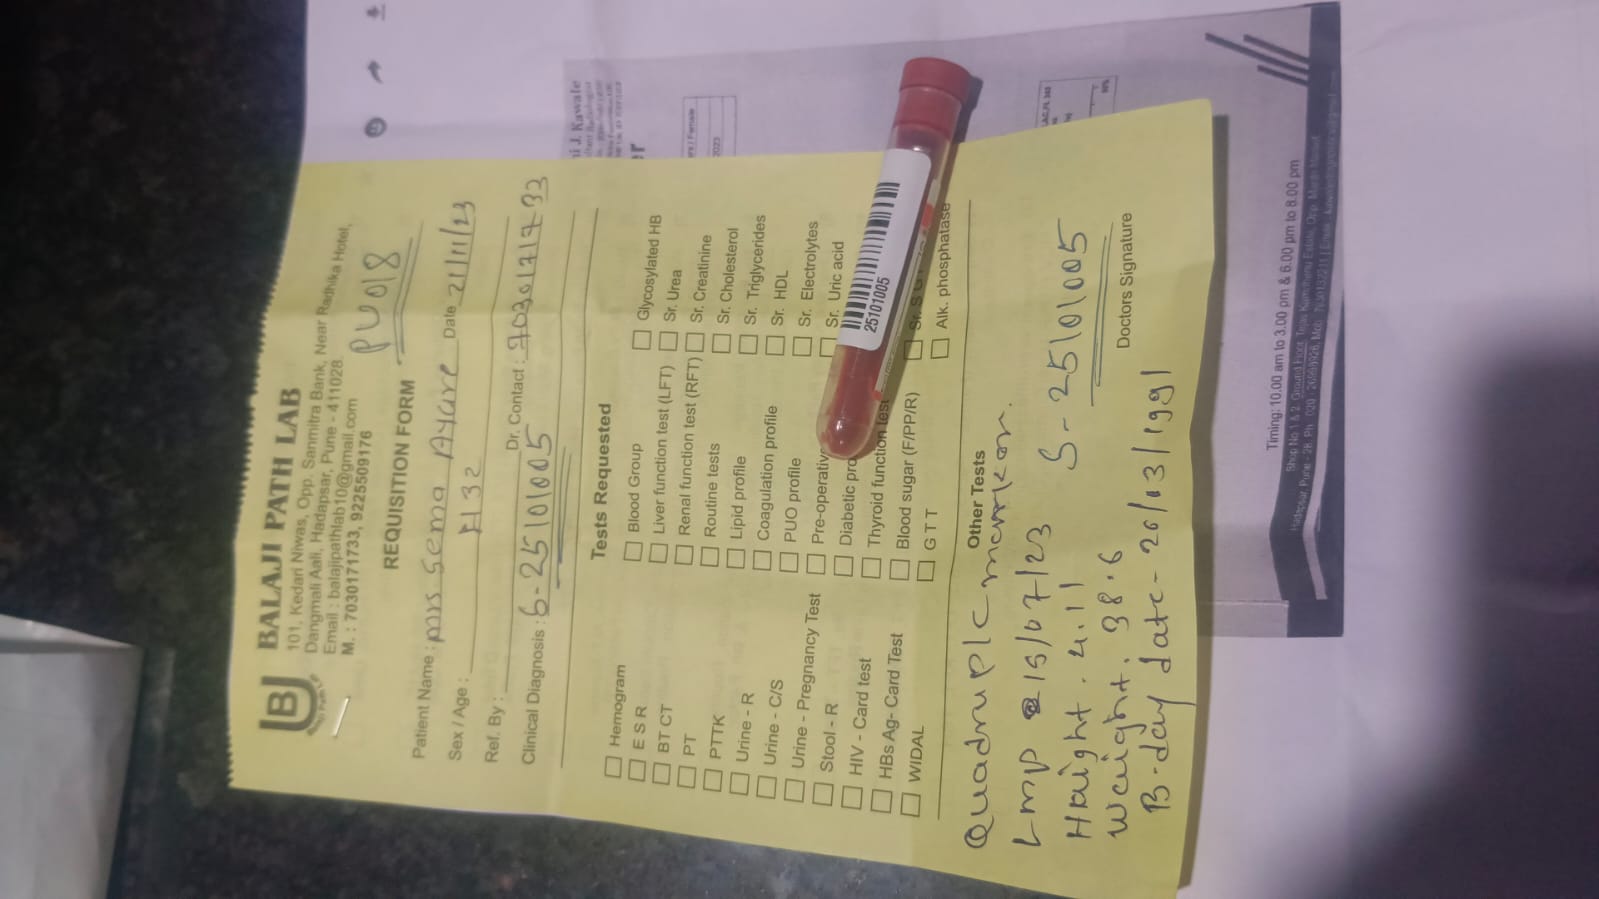 BJ
BALAJI PATH LAB
101, Kedari Niwas, Opp. Sanmitra Bank, Near Radhika Hotel,
Dangmali Aali, Hadapsar, Pune - 411028.
Email : balajipathlab10@gmail.com
M. : 7030171733, 9225509176
PU018
REQUISITION FORM
Patient Name : mrs sema Ayare Date 21/11/23
Sex / Age : F132
Ref. By : Dr. Contact : 7030171733
Clinical Diagnosis : S-25101005
Tests Requested
Hemogram
E S R
BT CT
PT
PTTK
Urine - R
Urine - C/S
Urine - Pregnancy Test
Stool - R
HIV - Card test
HBs Ag- Card Test
WIDAL
Blood Group
Liver function test (LFT)
Renal function test (RFT)
Routine tests
Lipid profile
Coagulation profile
PUO profile
Pre-operativ
Diabetic pro
Thyroid function test
Blood sugar (F/PP/R)
G T T
Glycosylated HB
Sr. Urea
Sr. Creatinine
Sr. Cholesterol
Sr. Triglycerides
Sr. HDL
Sr. Electrolytes
Sr. Uric acid
Sr. S G
Alk. phosphatase
25101005
Other Tests
Quadruplc markor.
Lmp @ 15/07/23 S-25101005
Haight. 4.11
Waight. 38.6
B-day date- 26/03/1991
Doctors Signature
ni J. Kawale
ers / Female
2023
Timing: 10.00 am to 3.00 pm & 6.00 pm to 8.00 pm
Shop No.1 & 2, Ground Floor,
Hadapsar, Pune - 28. Ph.: 020 -